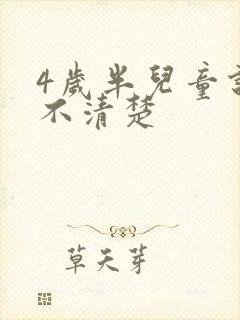 4歲半兒童
不清楚
草天芽